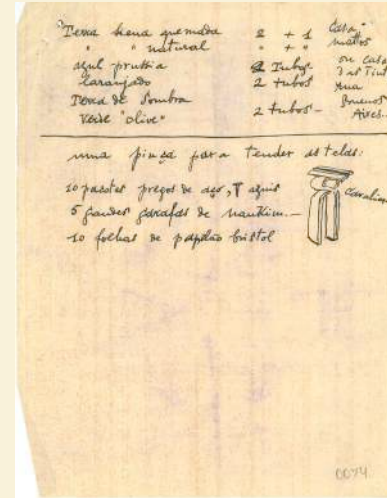 Terra siena queimada 2 + 1
" " natural " + "
azul prussia 2 Tubos
laranjado 2 tubos
Terra de Sombra
Verde "olive" 2 tubos -
Casa mattos
ou casa
das Tintas
Rua
Buenos
Aires.
uma pinça para tender as telas:
10 pacotes pregos de aço, T azuis
5 grandes garrafas de nankim. -
10 folhas de papelão bristol
Cavalino
0074